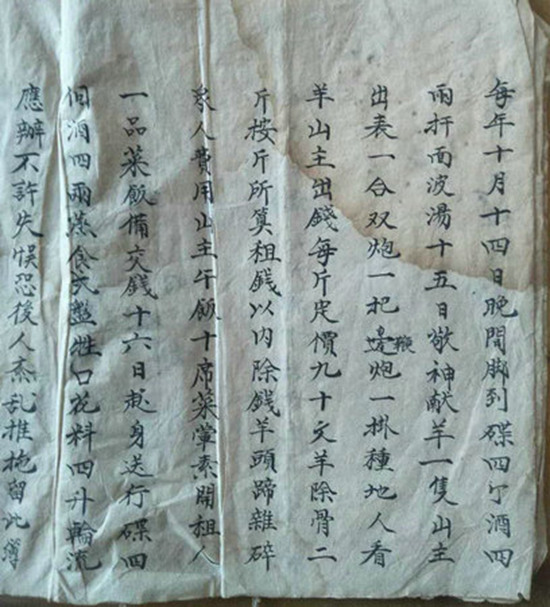 每年十月十四日晚間脚到碟四个酒四
兩扞面波湯十五日敬神献羊一隻山主
出表一合双炮一把邊鞭炮一掛種地人看
羊山主出錢每斤定價九十文羊除骨二
斤按斤所算租錢以内除錢羊頭蹄雜碎
衆人費用山主午飯十席菜葷素開租人
一品菜飯備交錢十六日起身送行碟四
個酒四兩蒸食天盤牲口花料四升輪流
應辦不許失悞恐後人紊乱推拖留此簿